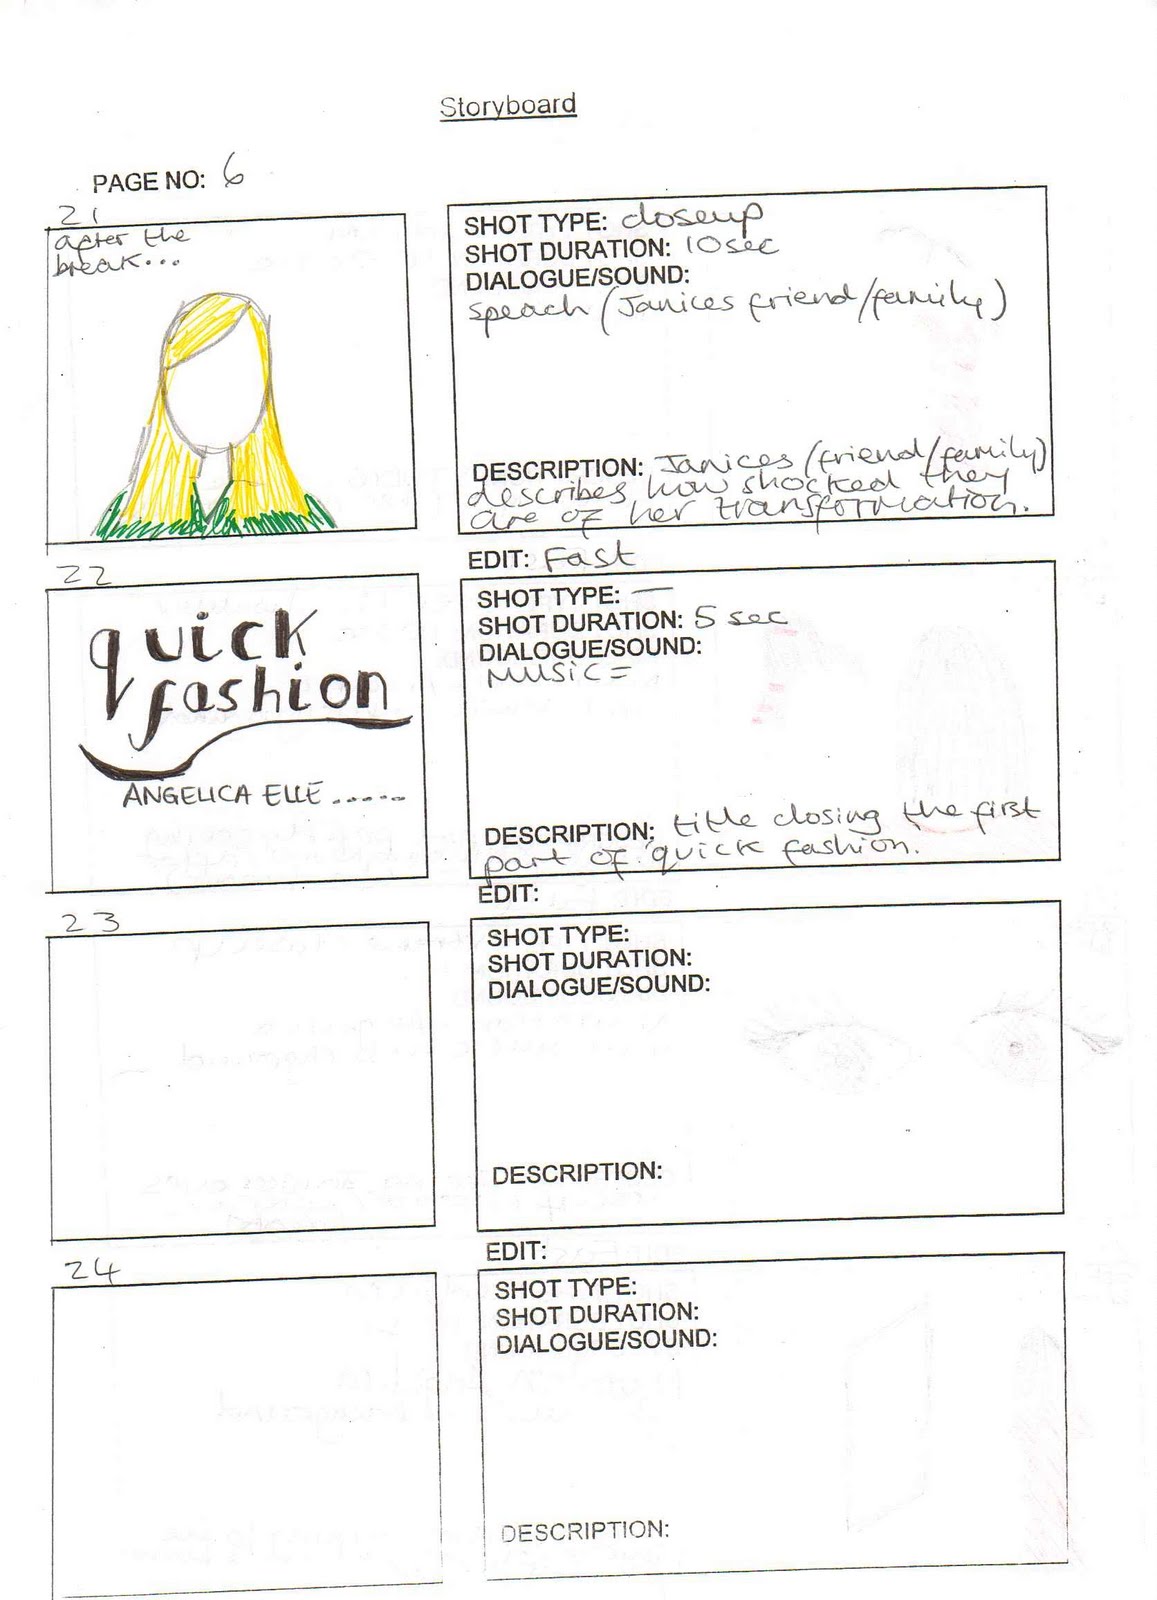 Storyboard
PAGE NO: 6
21
after the
break...
SHOT TYPE: closeup
SHOT DURATION: 10sec
DIALOGUE/SOUND:
speach (Janices friend/family)
DESCRIPTION: Janices (friend/family)
describes how shocked they
are of her transformation.
EDIT: Fast
22
quick
fashion
ANGELICA ELLE ......
SHOT TYPE: —
SHOT DURATION: 5 sec
DIALOGUE/SOUND:
MUSIC =
DESCRIPTION: title closing the first
part of 'quick fashion.
EDIT:
23
SHOT TYPE:
SHOT DURATION:
DIALOGUE/SOUND:
DESCRIPTION:
EDIT:
24
SHOT TYPE:
SHOT DURATION:
DIALOGUE/SOUND:
DESCRIPTION: